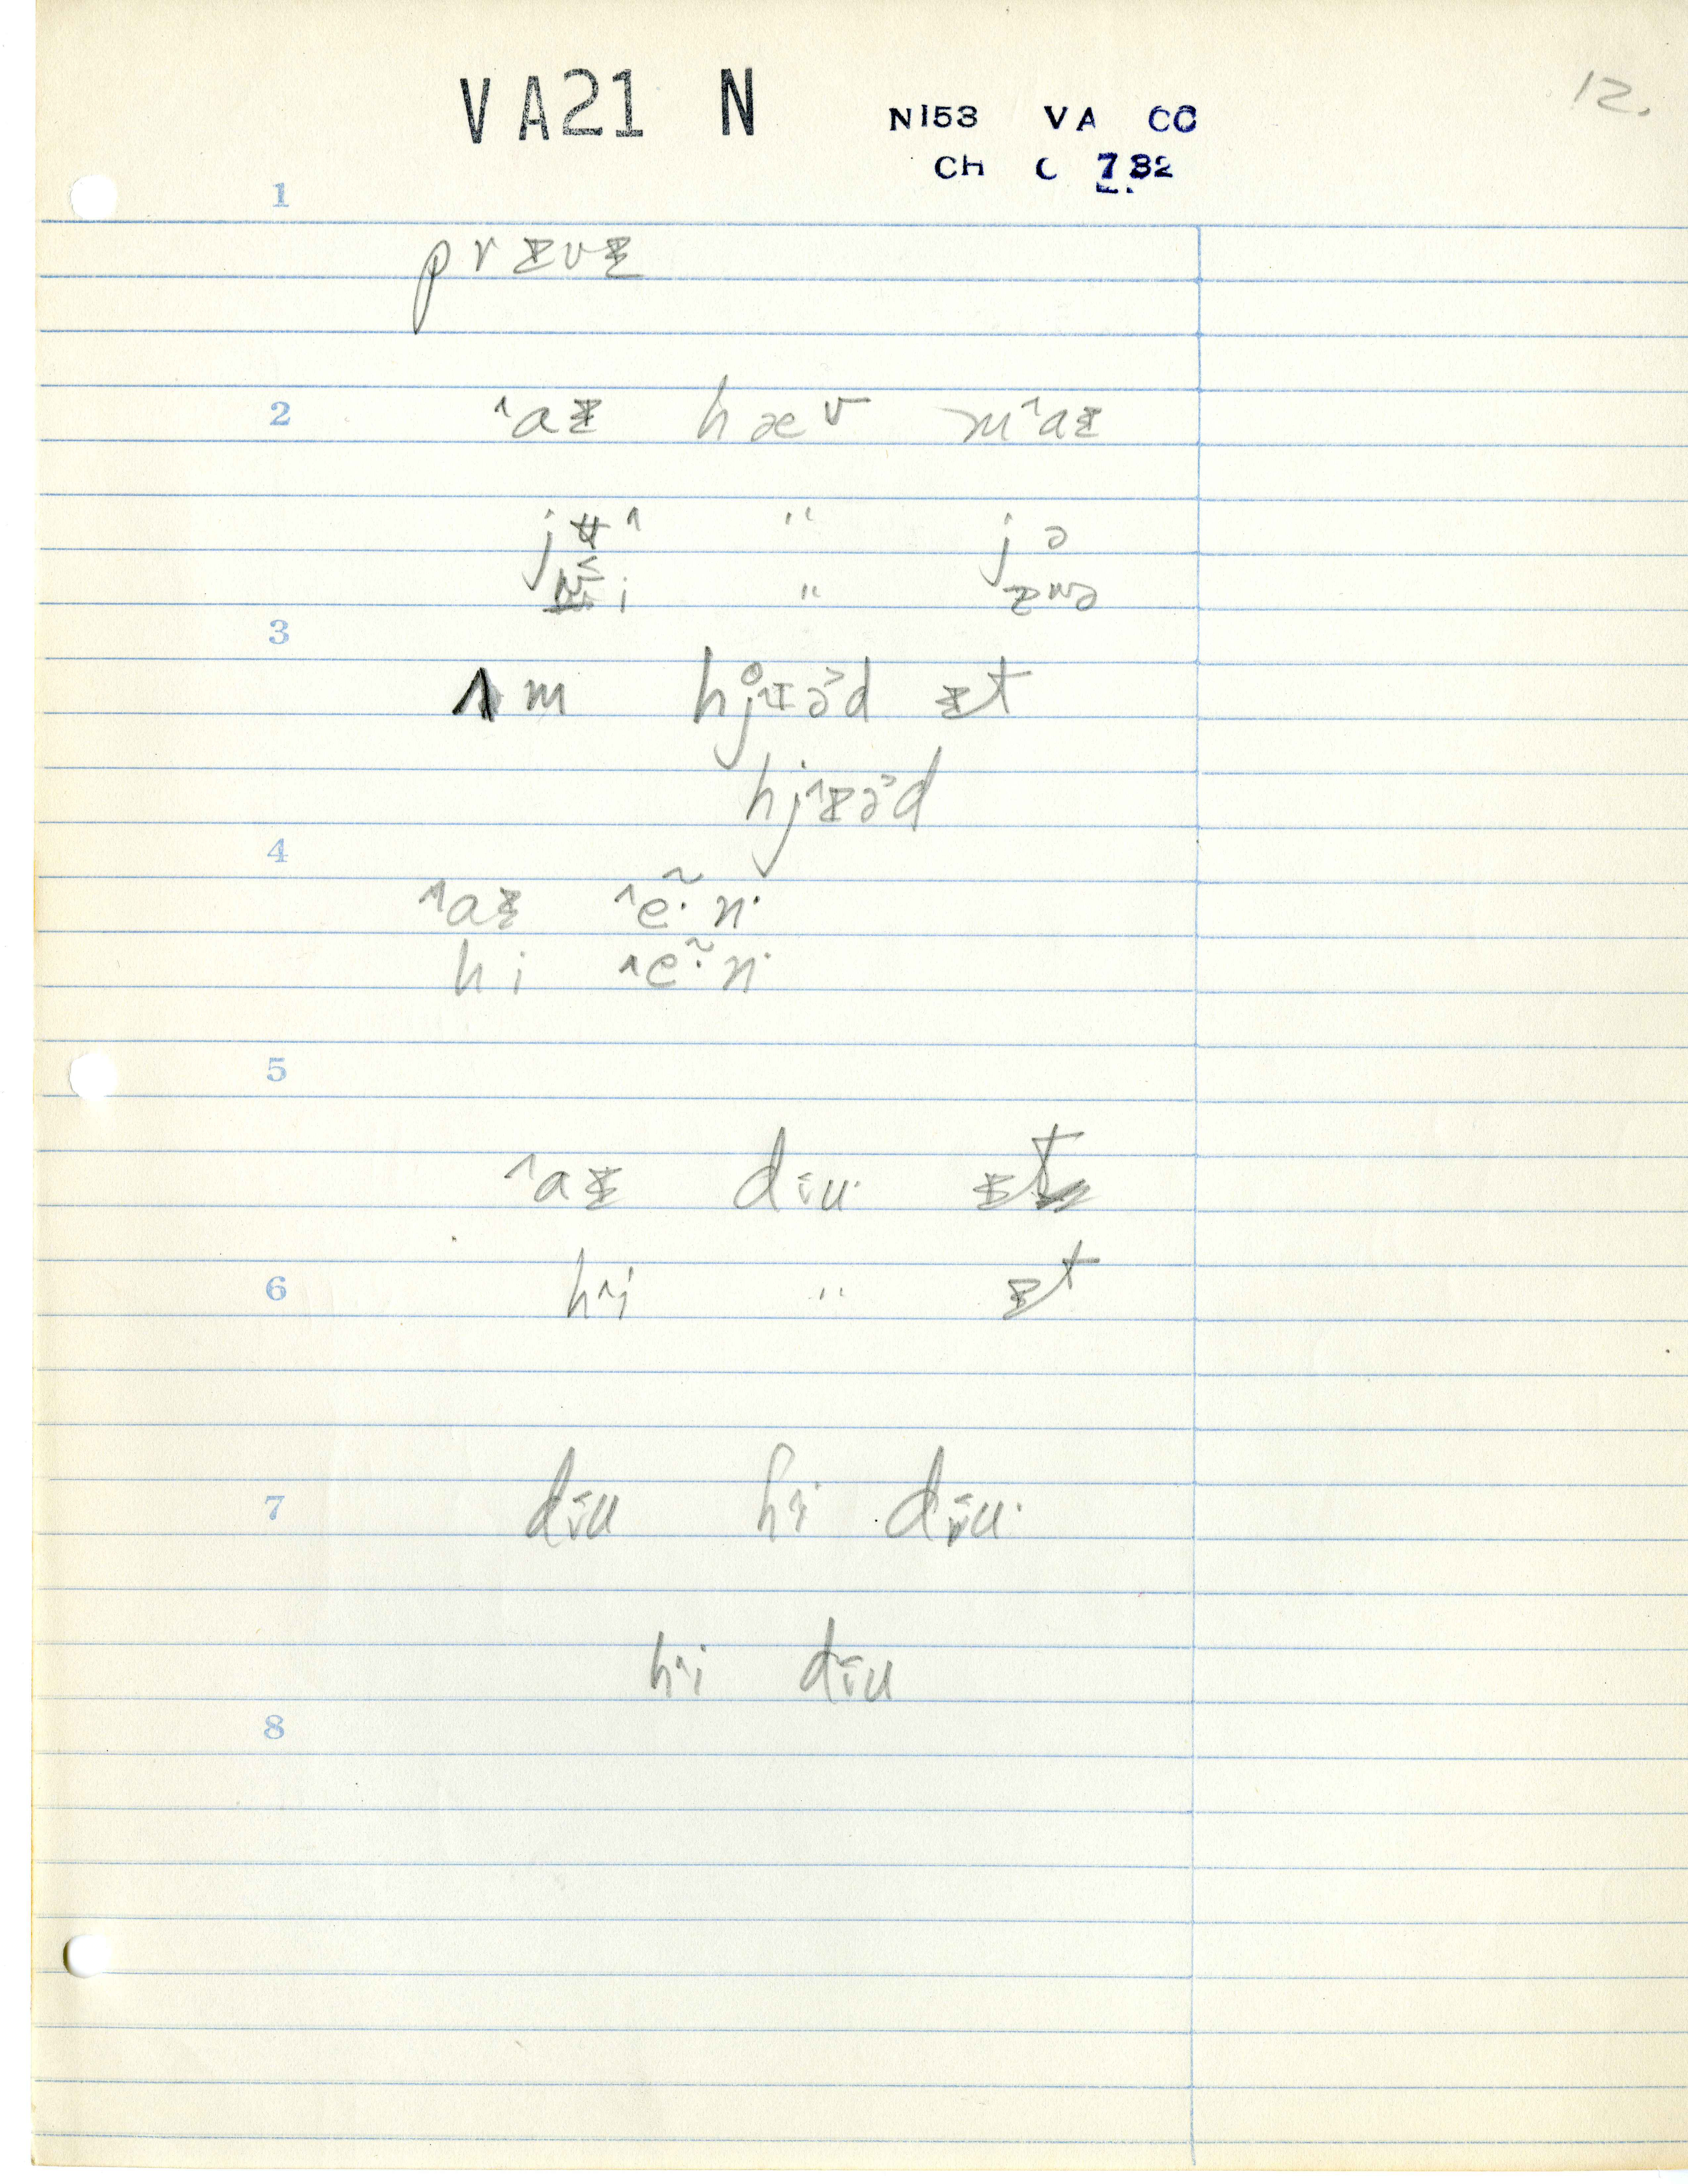 VA21 N
N153 VA CC
CH C 7 32
12.
1
prɪvɪ
2
ˆaɪ hæv mˆaɪ
" jə
i "
3
ʌm hj̊ˆɪə˃d ɪt
hjˆɪə˃d
4
ˆaɪ ˆẽ· n·
hi ˆẽ· n·
5
ˆaɪ diu· ɪt
6
hˆi " ɪt
7
diu hˆi diu·
hˆi diu
8